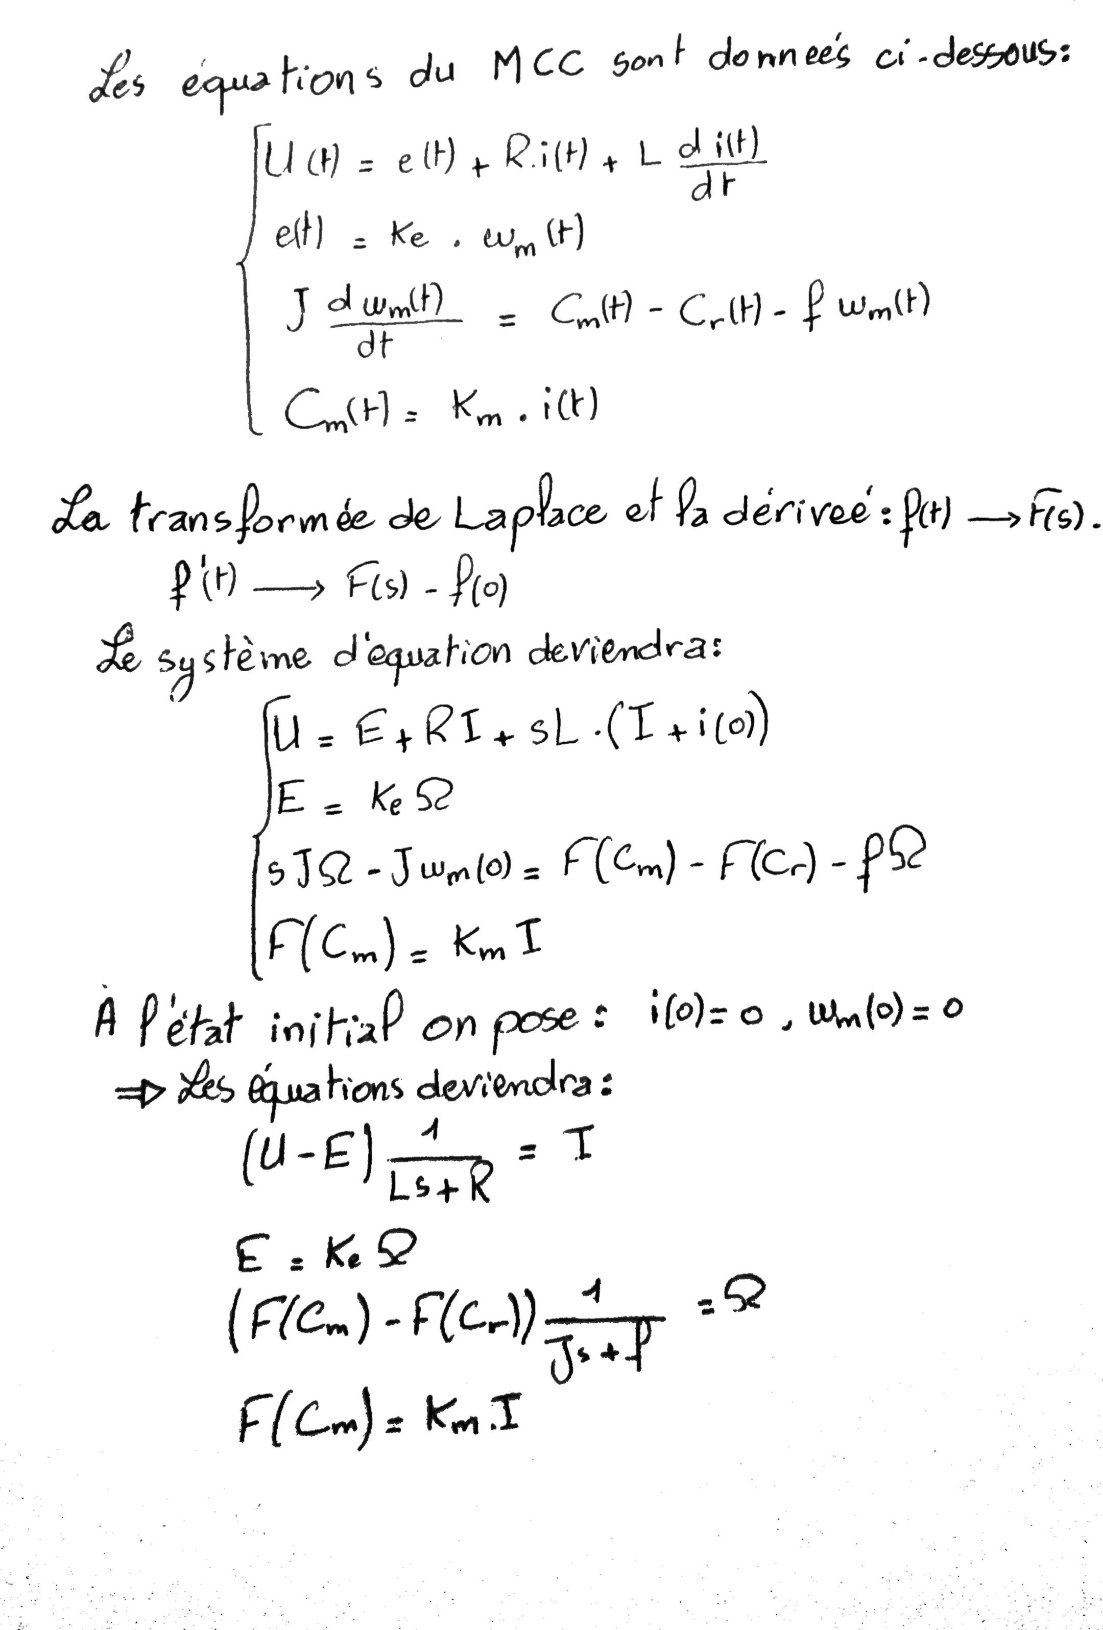 Les équations du MCC sont donneés ci-dessous:
U(t) = e(t) + R.i(t) + L d i(t)/dt
e(t) = Ke . ωm(t)
J d ωm(t)/dt = Cm(t) - Cr(t) - f ωm(t)
Cm(t) = Km . i(t)
La transformée de Laplace et la dériveé : f(t) → F(s).
f'(t) → F(s) - f(0)
Le système d'equation deviendra:
U = E + RI + sL .(I + i(0))
E = Ke Ω
sJΩ - Jωm(0) = F(Cm) - F(Cr) - fΩ
F(Cm) = Km I
À l'état initial on pose : i(0) = 0 , ωm(0) = 0
⇒ Les équations deviendra :
(U-E) 1/(Ls+R) = I
E = Ke Ω
(F(Cm) - F(Cr)) 1/(Js+f) = Ω
F(Cm) = Km.I